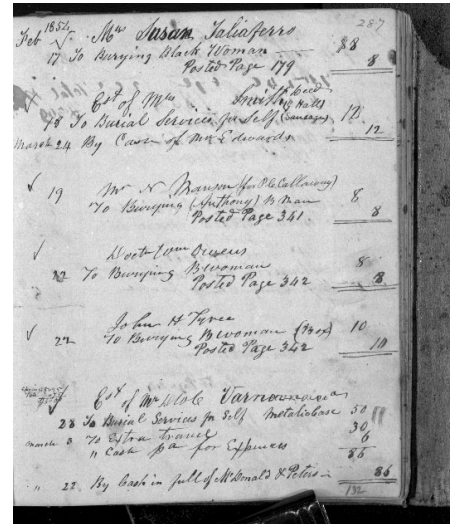 287
Feb 1854 Mrs Susan Taliaferro
17 To Burying Black Woman $8
Posted Page 179 8
Est of Mrs Smith Decd
18 To Burial Services for Self 12
March 24 By Cash of Mr Edwards 12
19 Mr N Manson (for P C Callaway)
To Burying (Anthony) B Man 8
Posted Page 341. 8
Doctr Wm Owens
22 To Burying B woman 8
Posted Page 342 8
John H Tyree
22 To Burying B woman 10
Posted Page 342 10
Est of Mr
28 To Burial Services for Self Metalic Case 50
March 3 To Extra travel 30
" Cash pd for Expences 6
86
" 22 By Cash in full of McDonald & Peters 86
132